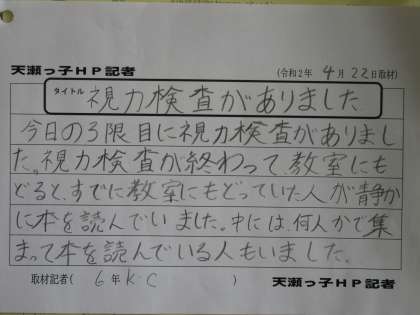 天瀬っ子HP記者
(令和2年 4月 22日取材)
タイトル 視力検査がありました
今日の3限目に視力検査がありまし
た。視力検査が終わって、教室にも
どると、すでに教室にもどっていた人が静か
に本を読んでいました。中には、何人かで集
まって本を読んでいる人もいました。
取材記者( 6年 K・C )
天瀬っ子HP記者